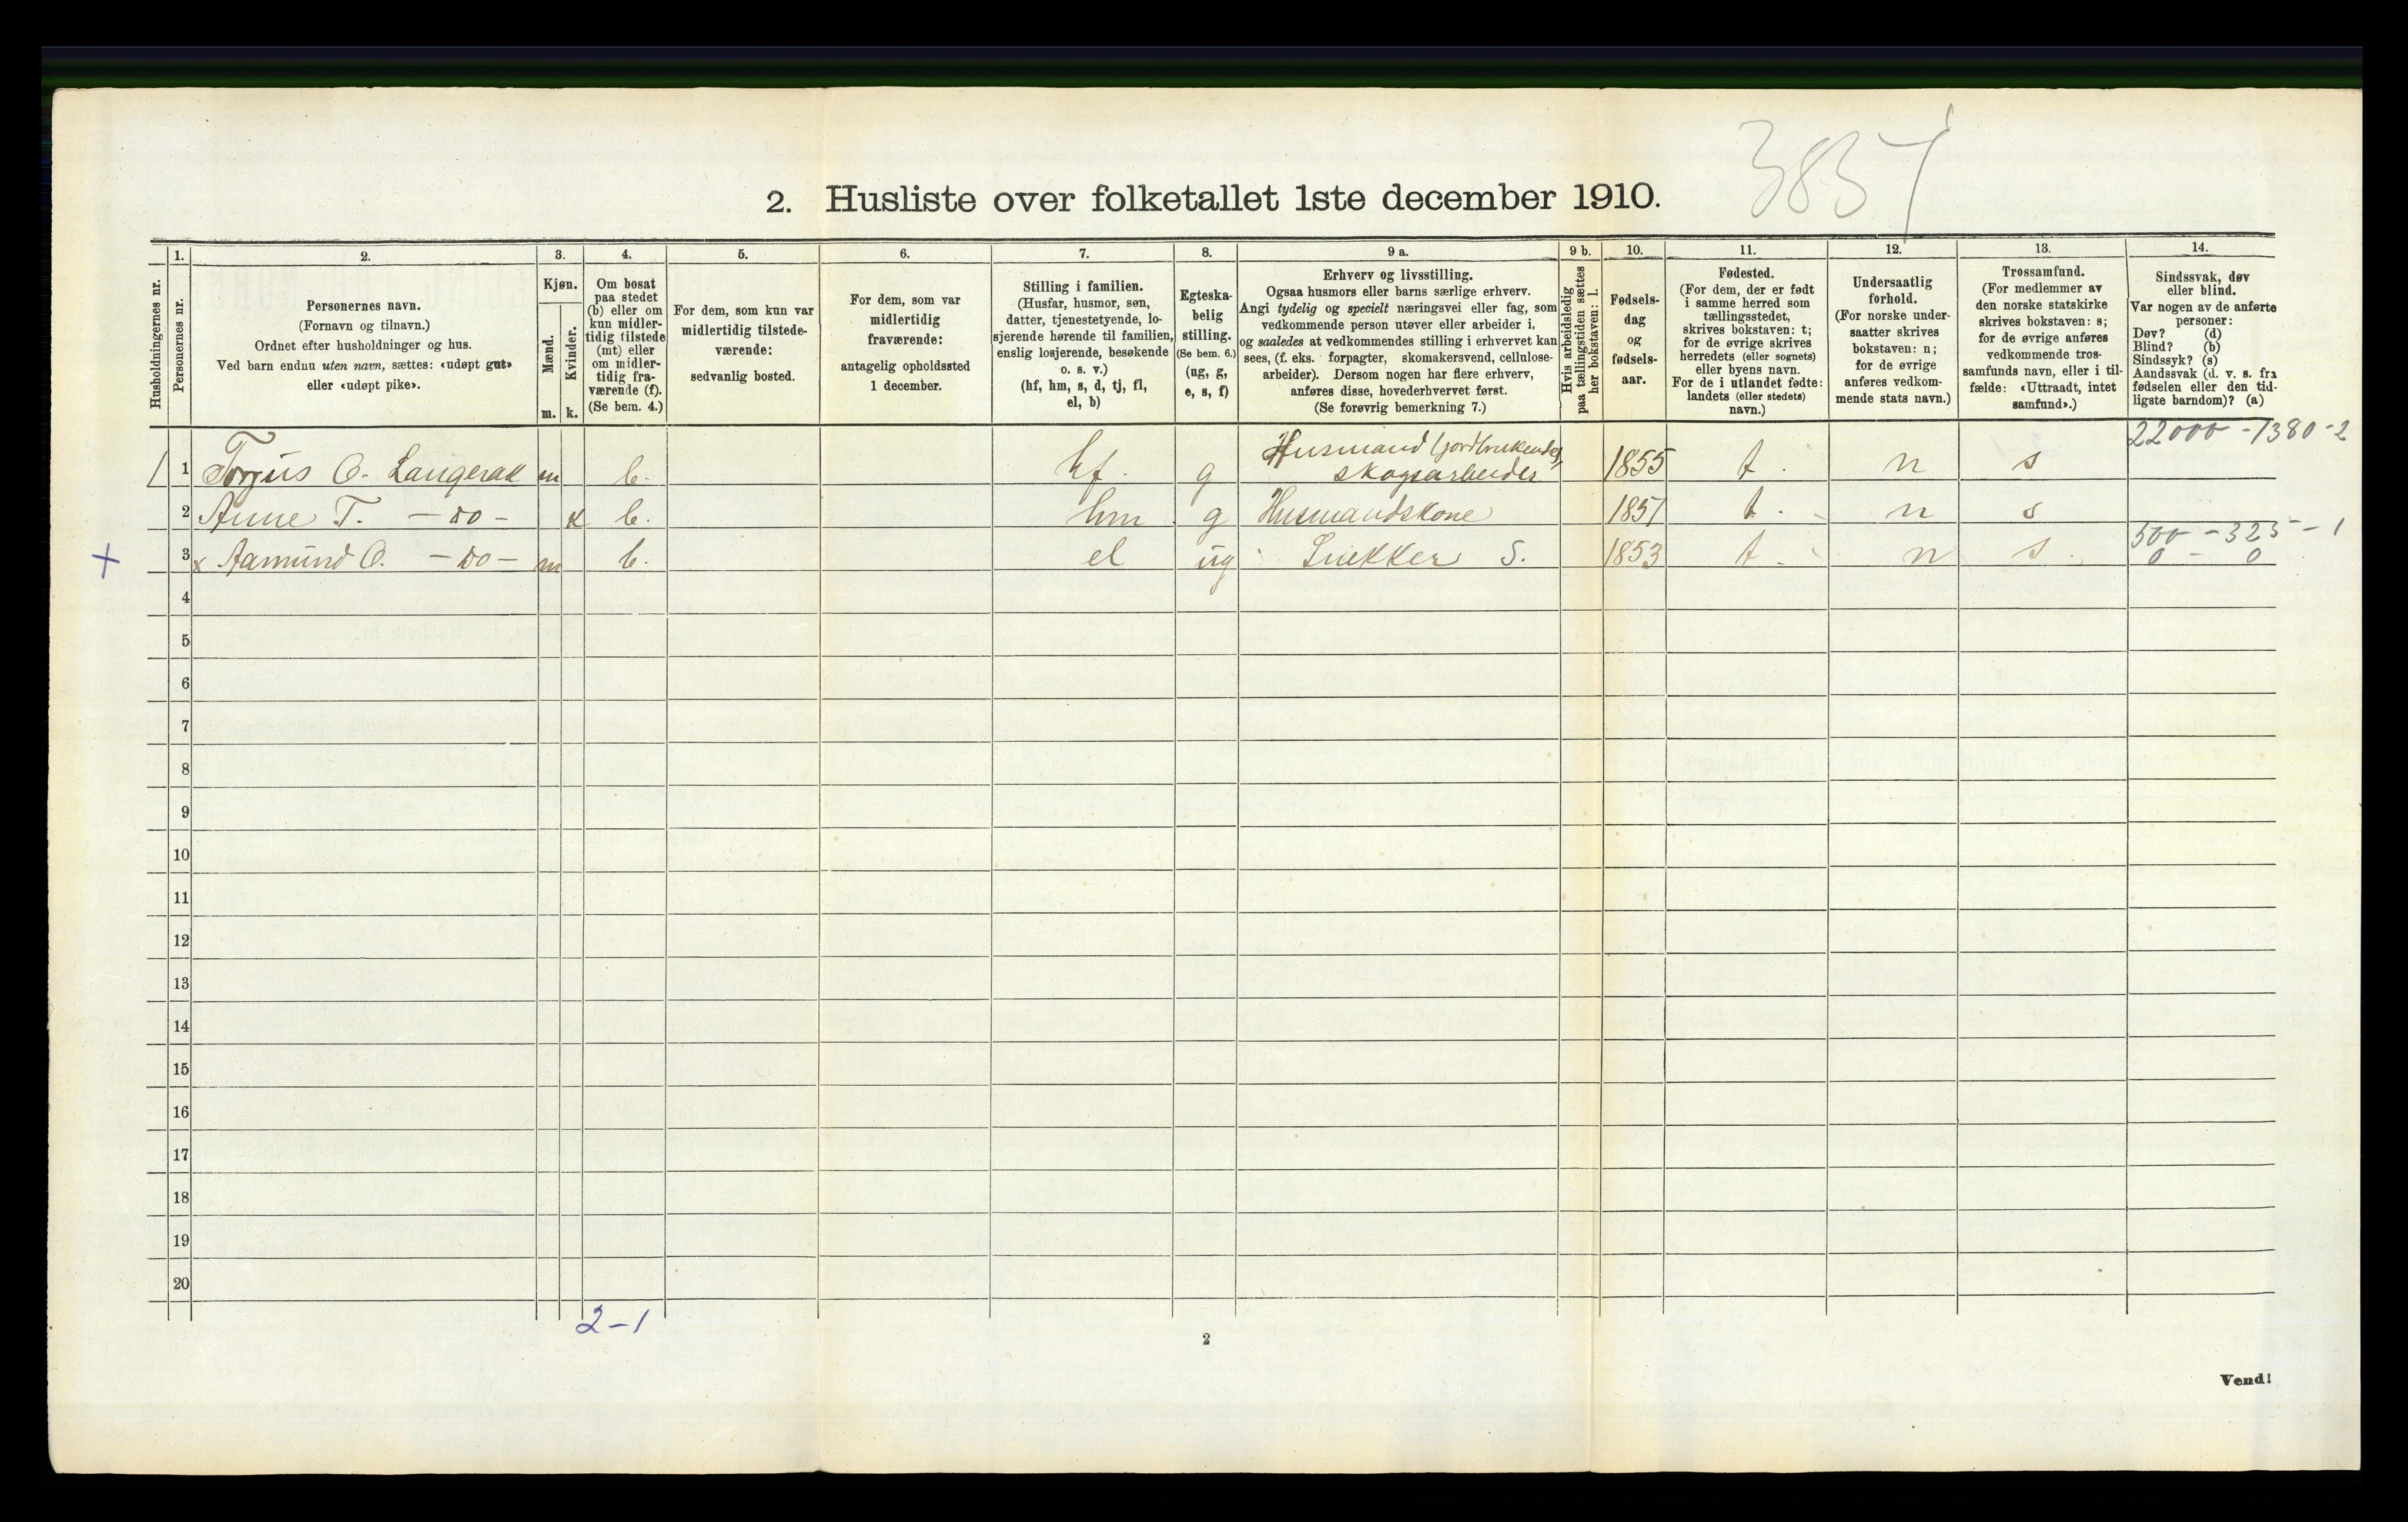 3857
2. Husliste over folketallet 1ste december 1910.
Husholdningernes nr.
1.
Personernes nr.
2.
Personernes navn.
(Fornavn og tilnavn.)
Ordnet efter husholdninger og hus.
Ved barn endnu uten navn, sættes: «udøpt gut»
eller «udøpt pike».
3.
Kjøn.
Mænd.
Kvinder.
m. k.
4.
Om bosat
paa stedet
(b) eller om
kun midler-
tidig tilstede
(mt) eller
om midler-
tidig fra-
værende (f).
(Se bem. 4.)
5.
For dem, som kun var
midlertidig tilstede-
værende:
sedvanlig bosted.
6.
For dem, som var
midlertidig
fraværende:
antagelig opholdssted
1 december.
7.
Stilling i familien.
(Husfar, husmor, søn,
datter, tjenestetyende, lo-
sjerende hørende til familien,
enslig losjerende, besøkende
o. s. v.)
(hf, hm, s, d, tj, fl,
el, b)
8.
Egteska-
belig
stilling.
(Se bem. 6.)
(ug, g,
e, s, f)
9 a.
Erhverv og livsstilling.
Ogsaa husmors eller barns særlige erhverv.
Angi tydelig og specielt næringsvei eller fag, som
vedkommende person utøver eller arbeider i,
og saaledes at vedkommendes stilling i erhvervet kan
sees, (f. eks. forpagter, skomakersvend, cellulose-
arbeider). Dersom nogen har flere erhverv,
anføres disse, hovederhvervet først.
(Se forøvrig bemerkning 7.)
9 b.
Hvis arbeidsledig
paa tællingstiden sættes
her bokstaven: l.
10.
Fødsels-
dag
og
fødsels-
aar.
11.
Fødested.
(For dem, der er født
i samme herred som
tællingsstedet,
skrives bokstaven: t;
for de øvrige skrives
herredets (eller sognets)
eller byens navn.
For de i utlandet fødte:
landets (eller stedets)
navn.)
12.
Undersaatlig
forhold.
(For norske under-
saatter skrives
bokstaven: n;
for de øvrige
anføres vedkom-
mende stats navn.)
13.
Trossamfund.
(For medlemmer av
den norske statskirke
skrives bokstaven: s;
for de øvrige anføres
vedkommende tros-
samfunds navn, eller i til-
fælde: «Uttraadt, intet
samfund».)
14.
Sindssvak, døv
eller blind.
Var nogen av de anførte
personer:
Døv? (d)
Blind? (b)
Sindssyk? (s)
Aandssvak (d. v. s. fra
fødselen eller den tid-
ligste barndom)? (a)
22000-1380-2
1 1 Torjus O. Langerak m b. hf. g Husmand (jordbrukende), skogsarbeider 1855 t. n s
2 Anne T. -do- k b. hm g Husmandskone 1857 t. n s
500-325-1
+ 3 x Aamund O. -do- m b. el ug Snekker S. 1853 t. n s. 0 - 0
4
5
6
7
8
9
10
11
12
13
14
15
16
17
18
19
20
2-1
2
Vend!